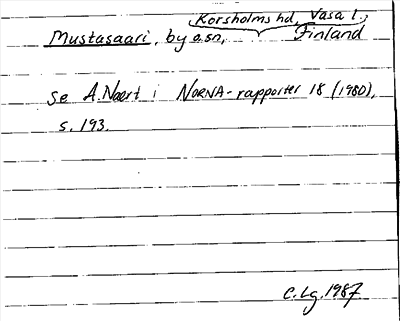 Korsholms hd, Vasa l.,
Mustasaari, by o. sn, Finland
Se A. Naert i NORNA-rapporter 18 (1980),
s. 193.
C. Lg. 1987